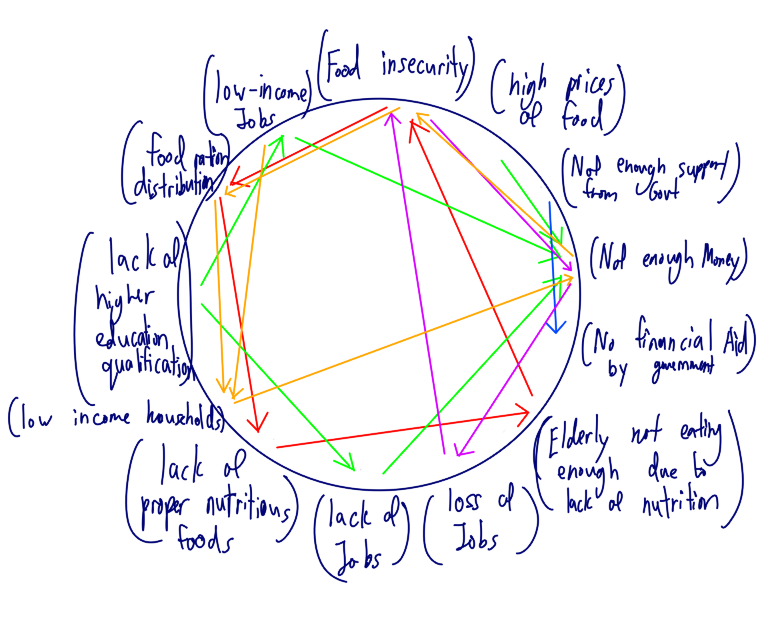 (Food insecurity)
(high prices
of food)
(Not enough support
from Govt)
(Not enough Money)
(No financial Aid)
by government
(Elderly not eating
enough due to
lack of nutrition)
(loss of
Jobs)
(lack of
Jobs)
(lack of
proper nutritious
foods)
(low income households)
(lack of
higher
education
qualification)
(food ration
distribution)
(low-income
Jobs)